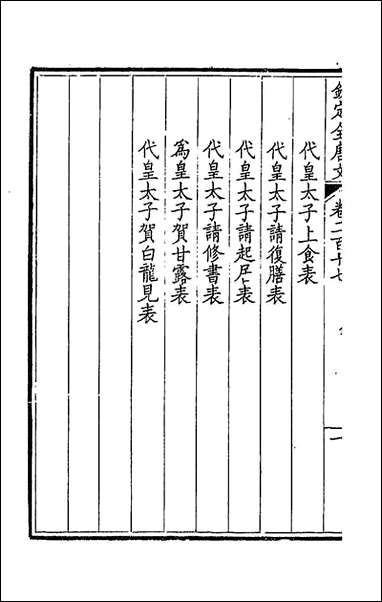 欽定全唐文 卷二百十七
代皇太子上食表
代皇太子請復膳表
代皇太子請起居表
代皇太子請修書表
為皇太子賀甘露表
代皇太子賀白龍見表